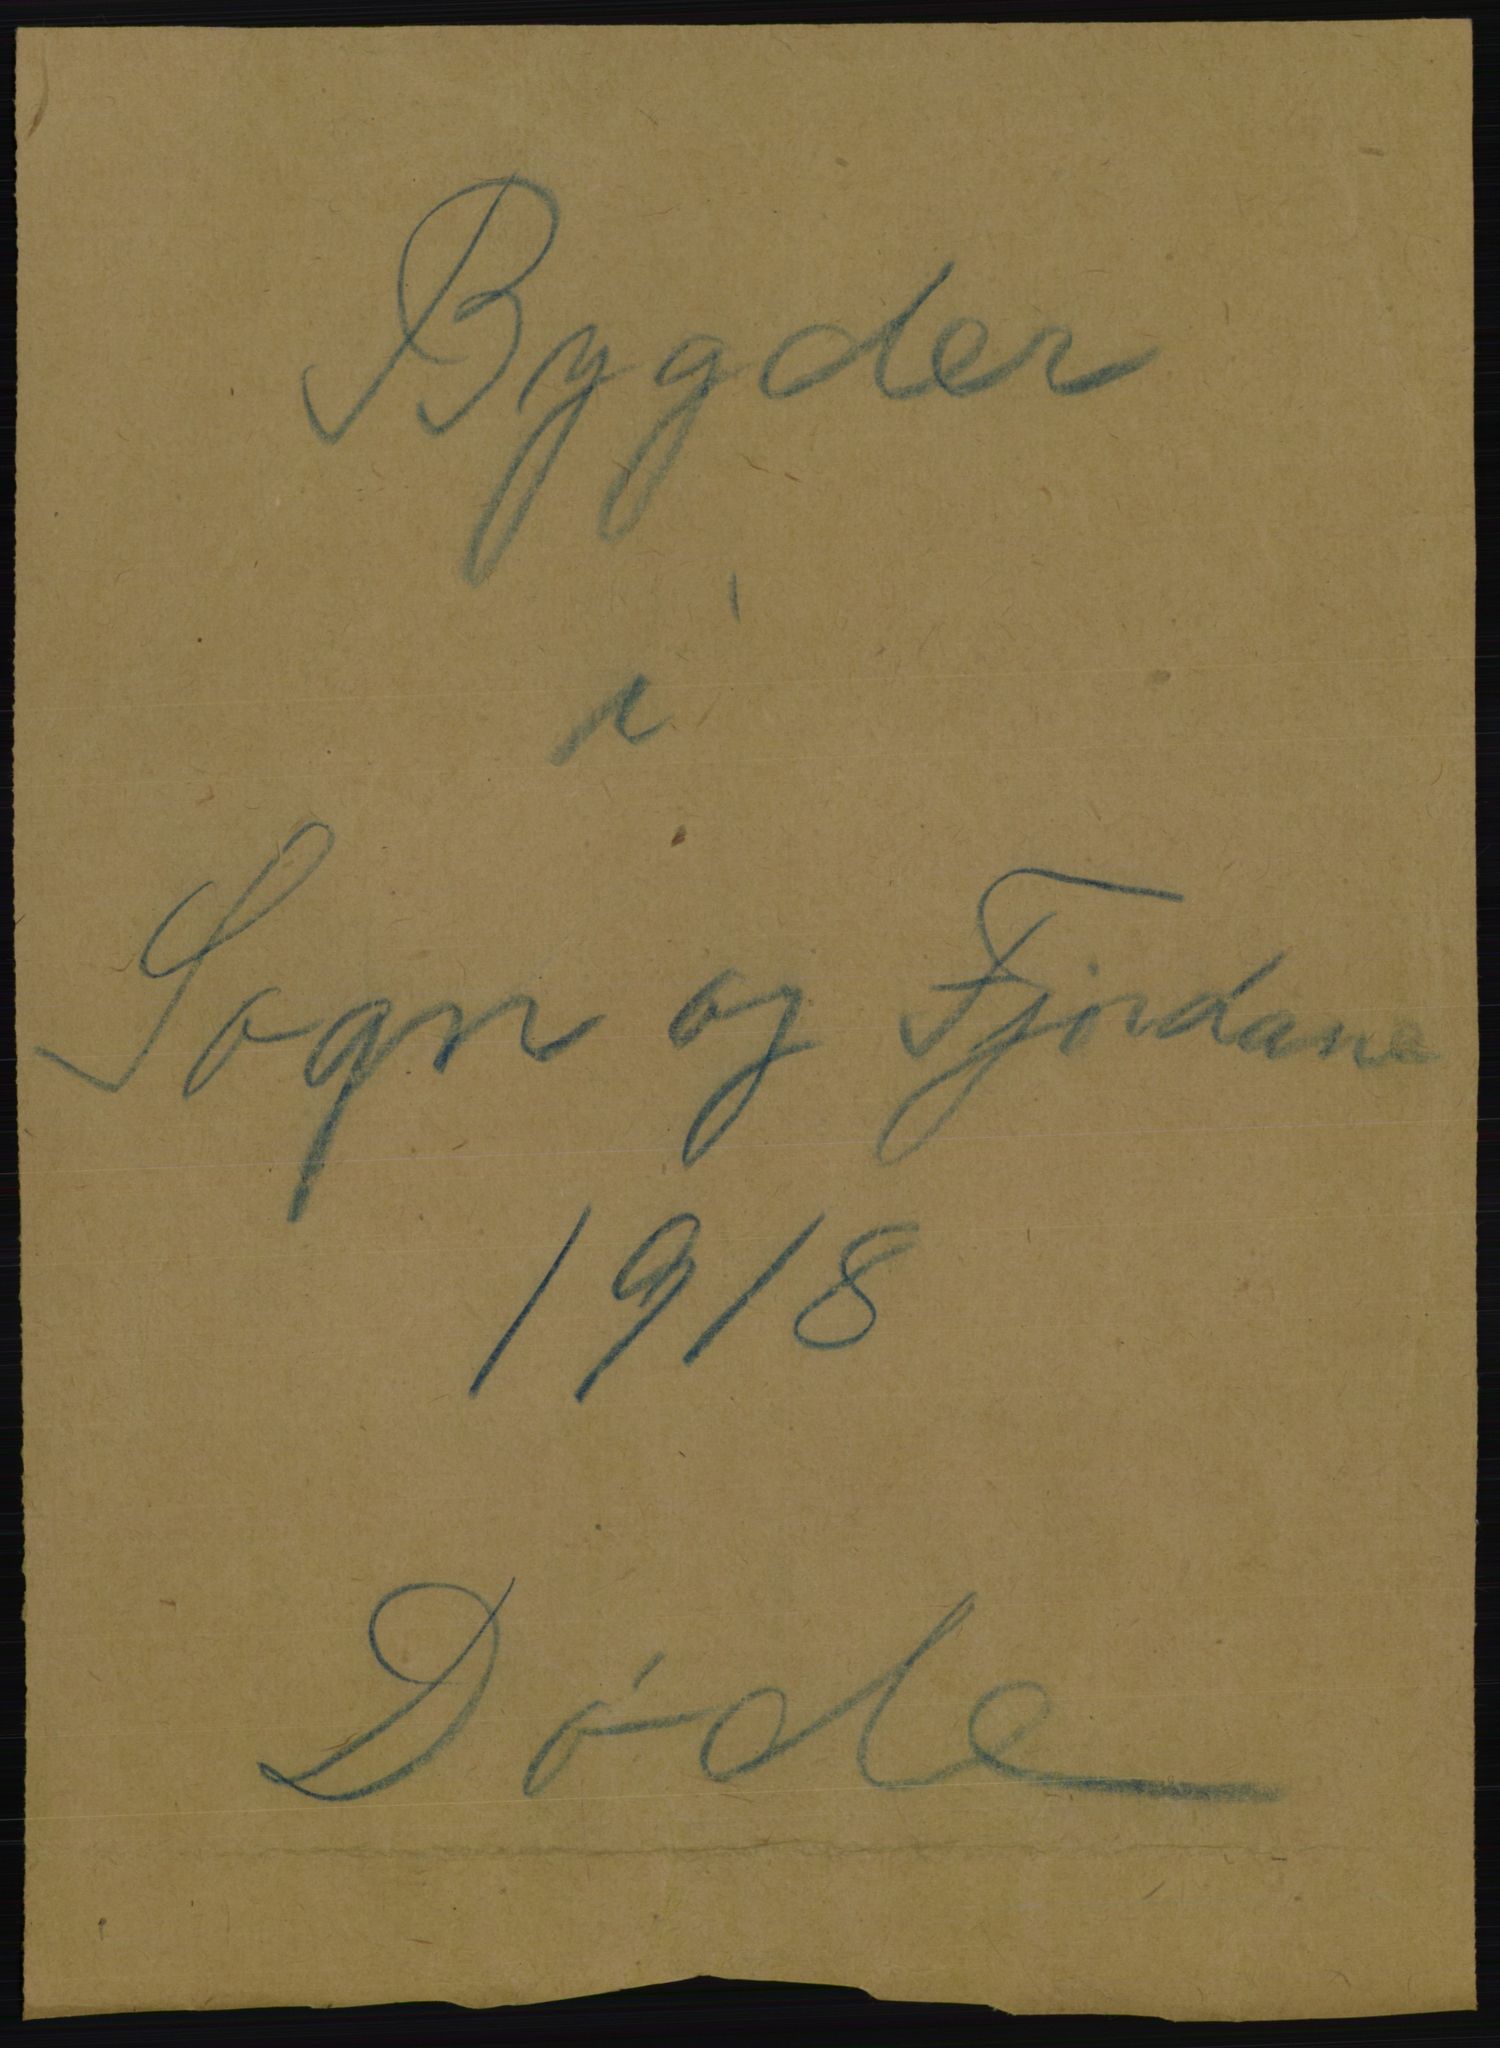 Bygder
i
Sogn og Fjordane
1918
Døde